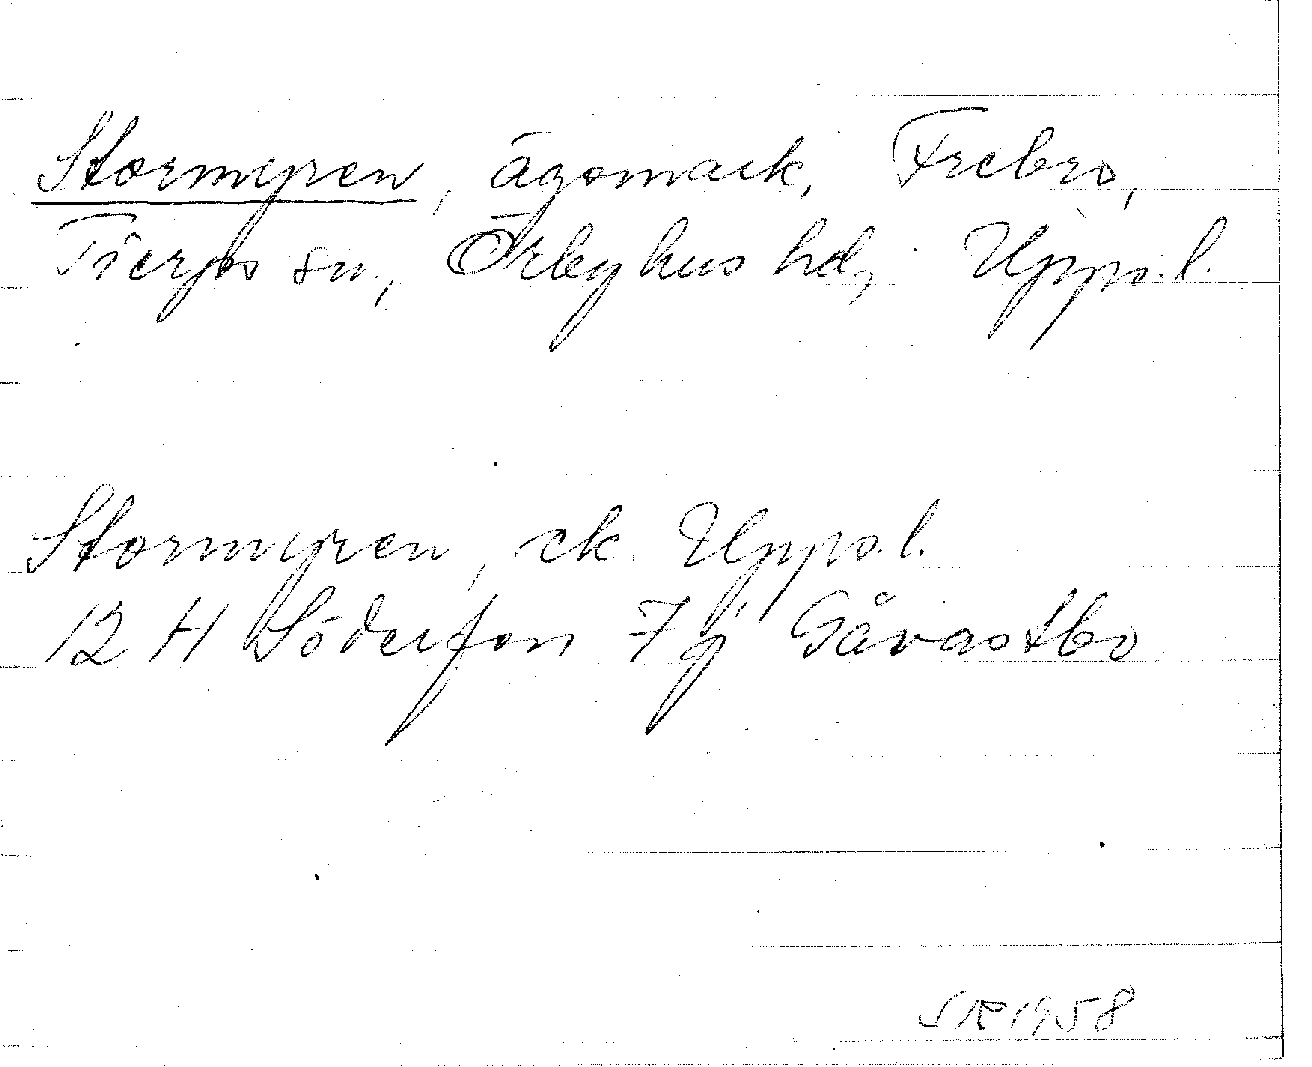 Stormyren, ägomark, Frebro,
Tierps sn, Örbyhus hd, Upps.l.
Stormyren, ek. Upps.l.
12 H Söderfors 7 j Gåvastbo
SR 1958